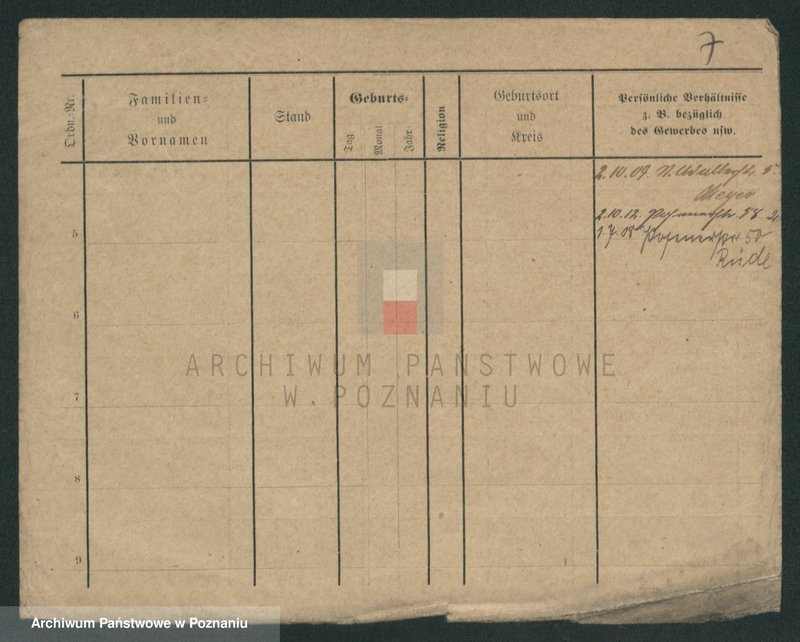 7
Ordn.-Nr.
Familien-
und
Vornamen
Stand
Geburts-
Tag
Monat
Jahr
Religion
Geburtsort
und
Kreis
Persönliche Verhältnisse
z. B. bezüglich
des Gewerbes usw.
2.10.09.
Meyer
2.10.12. 58
5
1.7.18 Posenerstr 50
Rüde
6
ARCHIWUM PAŃSTWOWE
W POZNANIU
7
8
9
Archiwum Państwowe w Poznaniu